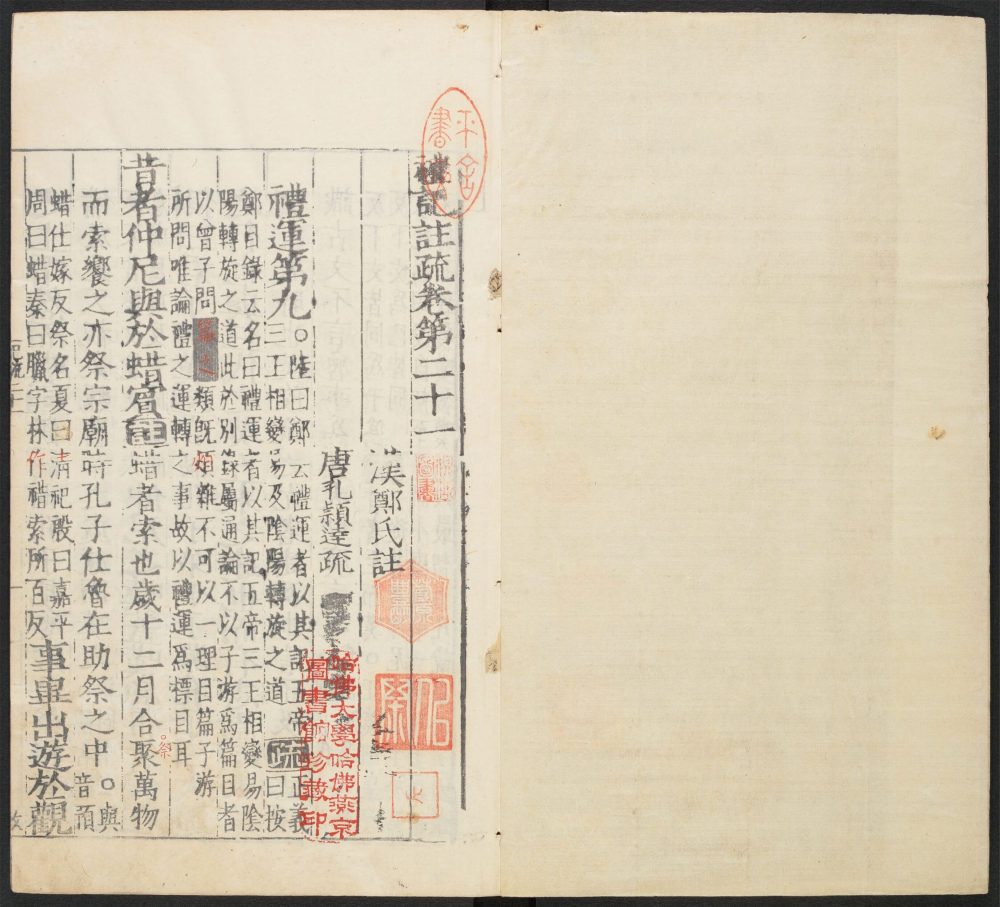 禮記註疏卷第二十一
漢鄭氏註
唐孔頴達疏
禮運第九。陸曰鄭云禮運者以其記五帝
三王相變易及陰陽轉旋之道疏正義
曰按
鄭目錄云名曰禮運者以其記五帝三王相變易陰
陽轉旋之道此於別錄屬通論不以子游爲篇目者
以曾子問類旣煩雜不可以一理目篇子游
所問唯論禮之運轉之事故以禮運爲標目耳
昔者仲尼與於蜡賔註蜡者索也歲十二月合聚萬物
而索饗之亦祭宗廟時孔子仕魯在助祭之中。與
音預
蜡仕嫁反祭名夏曰清祀殷曰嘉平
周曰蜡秦曰臘字林作䄍索所百反事畢出遊於觀
祭
哈佛大學哈佛燕京
圖書館珍藏印